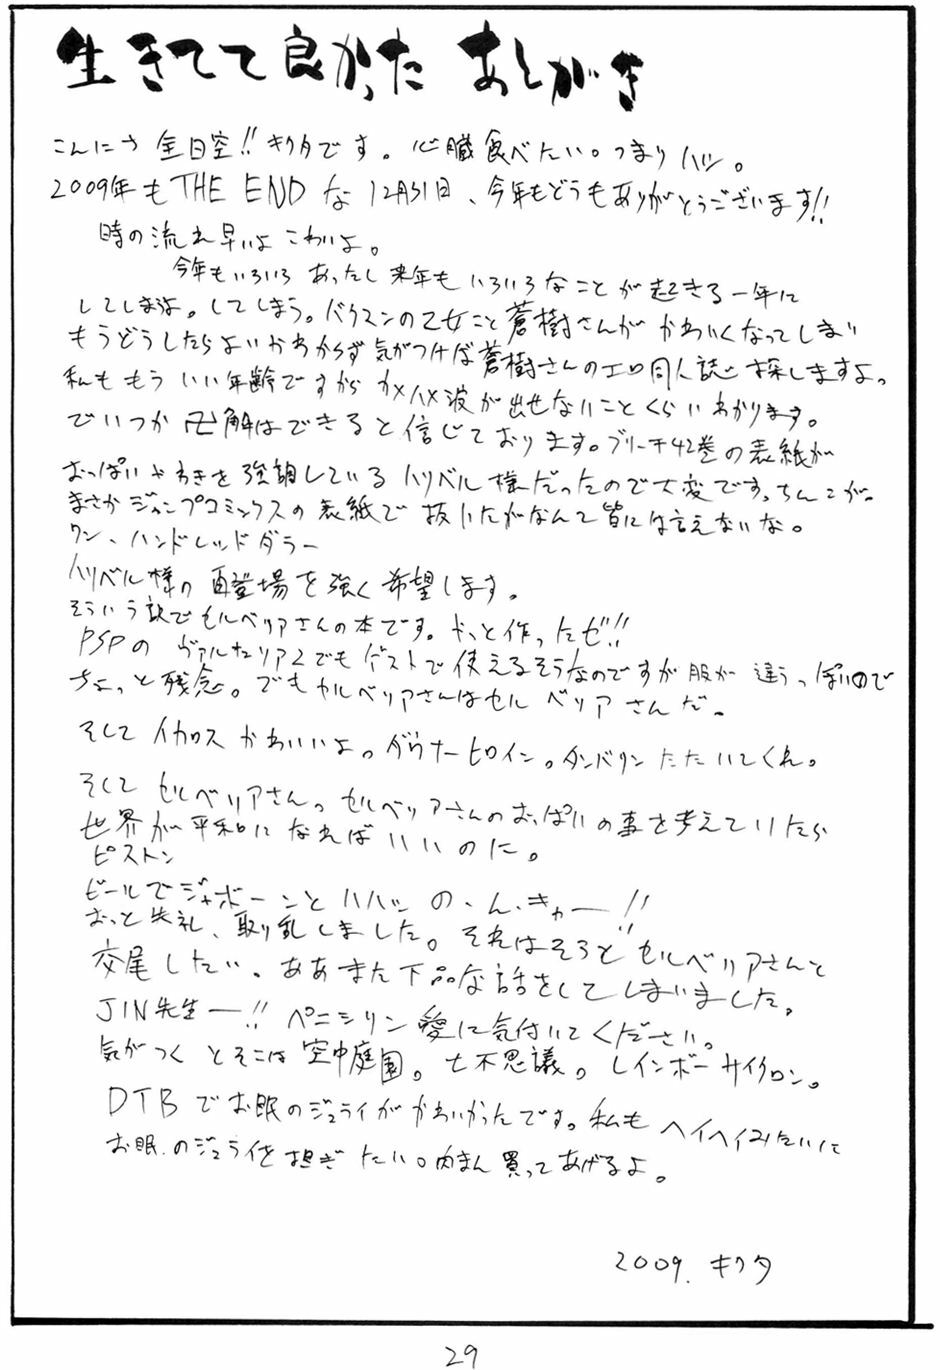 生きてて良かった あとがき
こんにち 全日空!! キクタです。心臓食べたい。つまりハツ。
2009年もTHE ENDな12月31日、今年もどうもありがとうございます!!
時の流れ早いよ こわいよ。
今年もいろいろ あったし 来年も いろいろなことが起きる一年に
してしまよ。してしまう。バクマンの乙女こと蒼樹さんがかわいくなってしまい
もうどうしたらよいかわからず気がつけば蒼樹さんのエロ同人誌を探しますよ。
私ももういい年齢ですからカメハメ波が出せないことくらいわかります。
でいつか卍解はできると信じております。ブリーチ42巻の表紙が
おっぱいやわきを強調しているハリベル様だったので大変です。ちんこが。
まさかジャンプコミックスの表紙で抜いたがなんて皆には言えないな。
ワン、ハンドレッドダラー
ハリベル様の再登場を強く希望します。
そういう訳でセルベリアさんの本です。やっと作ったゼ!!
PSPの ヴァルキュリア2でもゲストで使えるそうなのですが服が違うっぽいので
ちょっと残念。でもセルベリアさんはセルベリアさんだ。
そしてイカロスかわいいよ。ダウナーヒロイン。タンバリンたたいてくれ。
そしてセルベリアさん。セルベリアさんのおっぱいの事を考えていたら
世界が平和になればいいのに。
ピストン
ビールでジャボーンとハハッ の、ん、きゃー!!
おっと失礼、取り乱しました。それはそうとセルベリアさんと
交尾したい。ああまた下品な話をしてしまいました。
JIN先生ー!! ペニシリン 愛に気付いてください。
気がつくとそこは空中庭園。七不思議。レインボーサイクロン。
DTBでお眠のジュライがかわいかったです。私もヘイヘイみたいに
お眠のジュライを担ぎたい。肉まん買ってあげるよ。
2009. キクタ
29